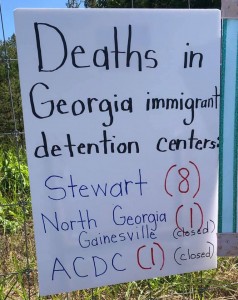 Deaths in
Georgia immigrant
detention centers:
Stewart (8)
North Georgia (1)
Gainesville (closed)
ACDC (1) (closed)